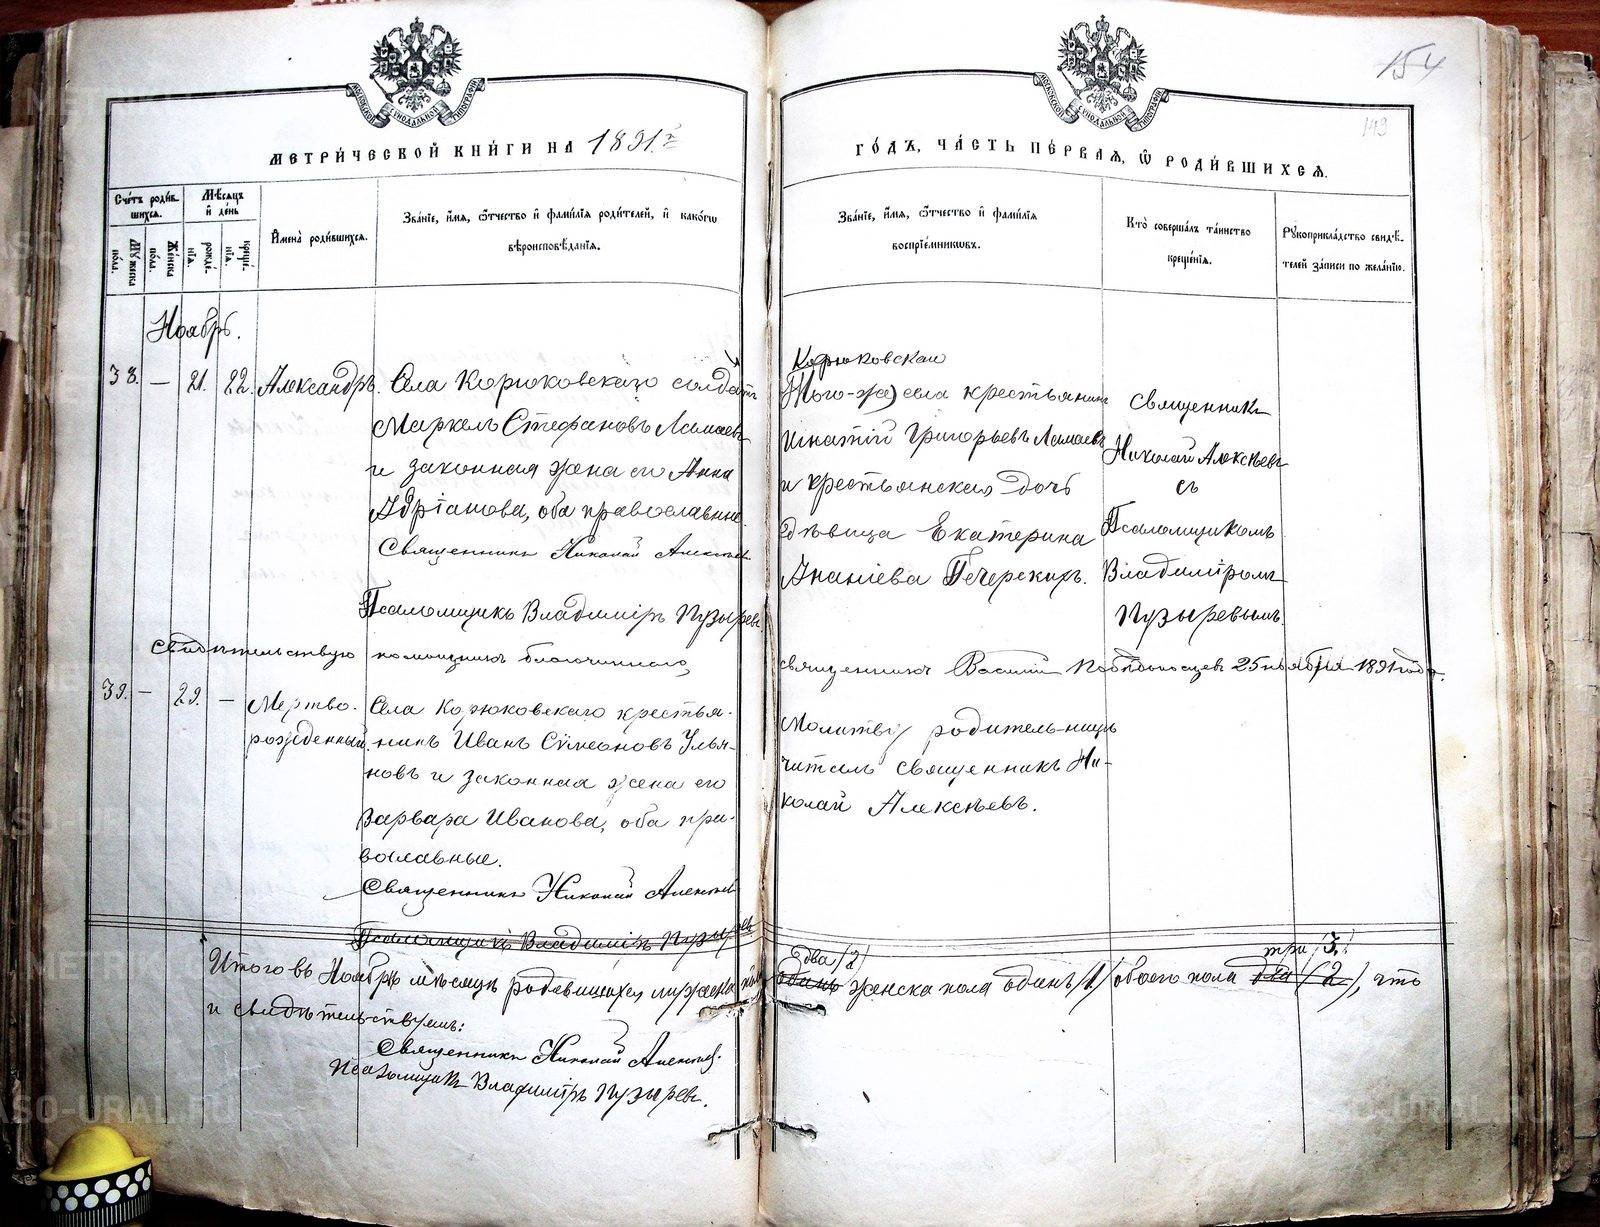 154
149
МОСКОВСКОЙ СУНОДАЛЬНОЙ ТИПОГРАФІИ
МОСКОВСКОЙ СУНОДАЛЬНОЙ ТИПОГРАФІИ
МЕТРИ́ЧЕСКОЙ КНИ́ГИ НА 1891й
ГО́ДЪ, ЧА́СТЬ ПЕ́РВАѦ, Ѡ҆ РОДИ́ВШИХСѦ.
Сче́тъ роди́в-
шихсѧ.
Му́жеска
по́ла.
Же́нска
по́ла.
Мѣ́сѧцъ
и҆ де́нь
рожде́-
нїѧ.
креще́-
нїѧ.
И҆мена̀ роди́вшихсѧ.
Зва́нїе, и҆́мѧ, ѻ҆́тчество и҆ фами́лїѧ роди́телей, и҆ како́гѡ
вѣроисповѣ́данїѧ.
Зва́нїе, и҆́мѧ, ѻ҆́тчество и҆ фами́лїѧ
воспрїе́мникѡвъ.
Кто̀ соверша́лъ та́инство
креще́нїѧ.
Рꙋкоприкла́дство свидѣ́-
телей за́писи по жела́нїю.
Ноябрь.
38. — 21. 22. Александръ. Села Корюковскаго солдатъ
Маркелъ Стефановъ Ламаевъ
и законная жена его Анна
Адріанова, оба православные.
Священникъ Николай Алексѣевъ
Псаломщикъ Владиміръ Пузыревъ.
Того-же села крестьянинъ
Игнатій Григорьевъ Ламаевъ
и крестьянская дочь
дѣвица Екатерина
Ананіева Печерскихъ.
Священникъ
Николай Алексѣевъ
съ
Псаломщикомъ
Владиміромъ
Пузыревымъ.
Свидѣтельствую помощникъ благочиннаго,
священникъ Василій Побѣдоносцевъ 25 ноября 1891 года.
39. — 29. — Мертво-
рожденный.
Села Корюковскаго крестья-
нинъ Иванъ Сѵмеоновъ Улья-
новъ и законная жена его
Варвара Иванова, оба пра-
вославные.
Священникъ Николай Алексѣевъ
Псаломщикъ Владиміръ Пузыревъ
Молитву родительницѣ
читалъ священникъ Ни-
колай Алексѣевъ.
два (2) три (3.)
Итого въ Ноябрѣ мѣсяцѣ родившихся мужеска пола одинъ женска пола одинъ (1) обоего пола два (2), что
и свидѣтельствуемъ:
Священникъ Николай Алексѣевъ.
Псаломщикъ Владиміръ Пузыревъ.